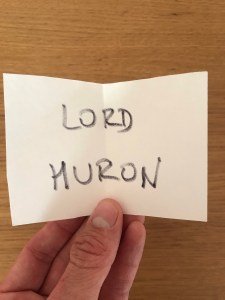 LORD
HURON